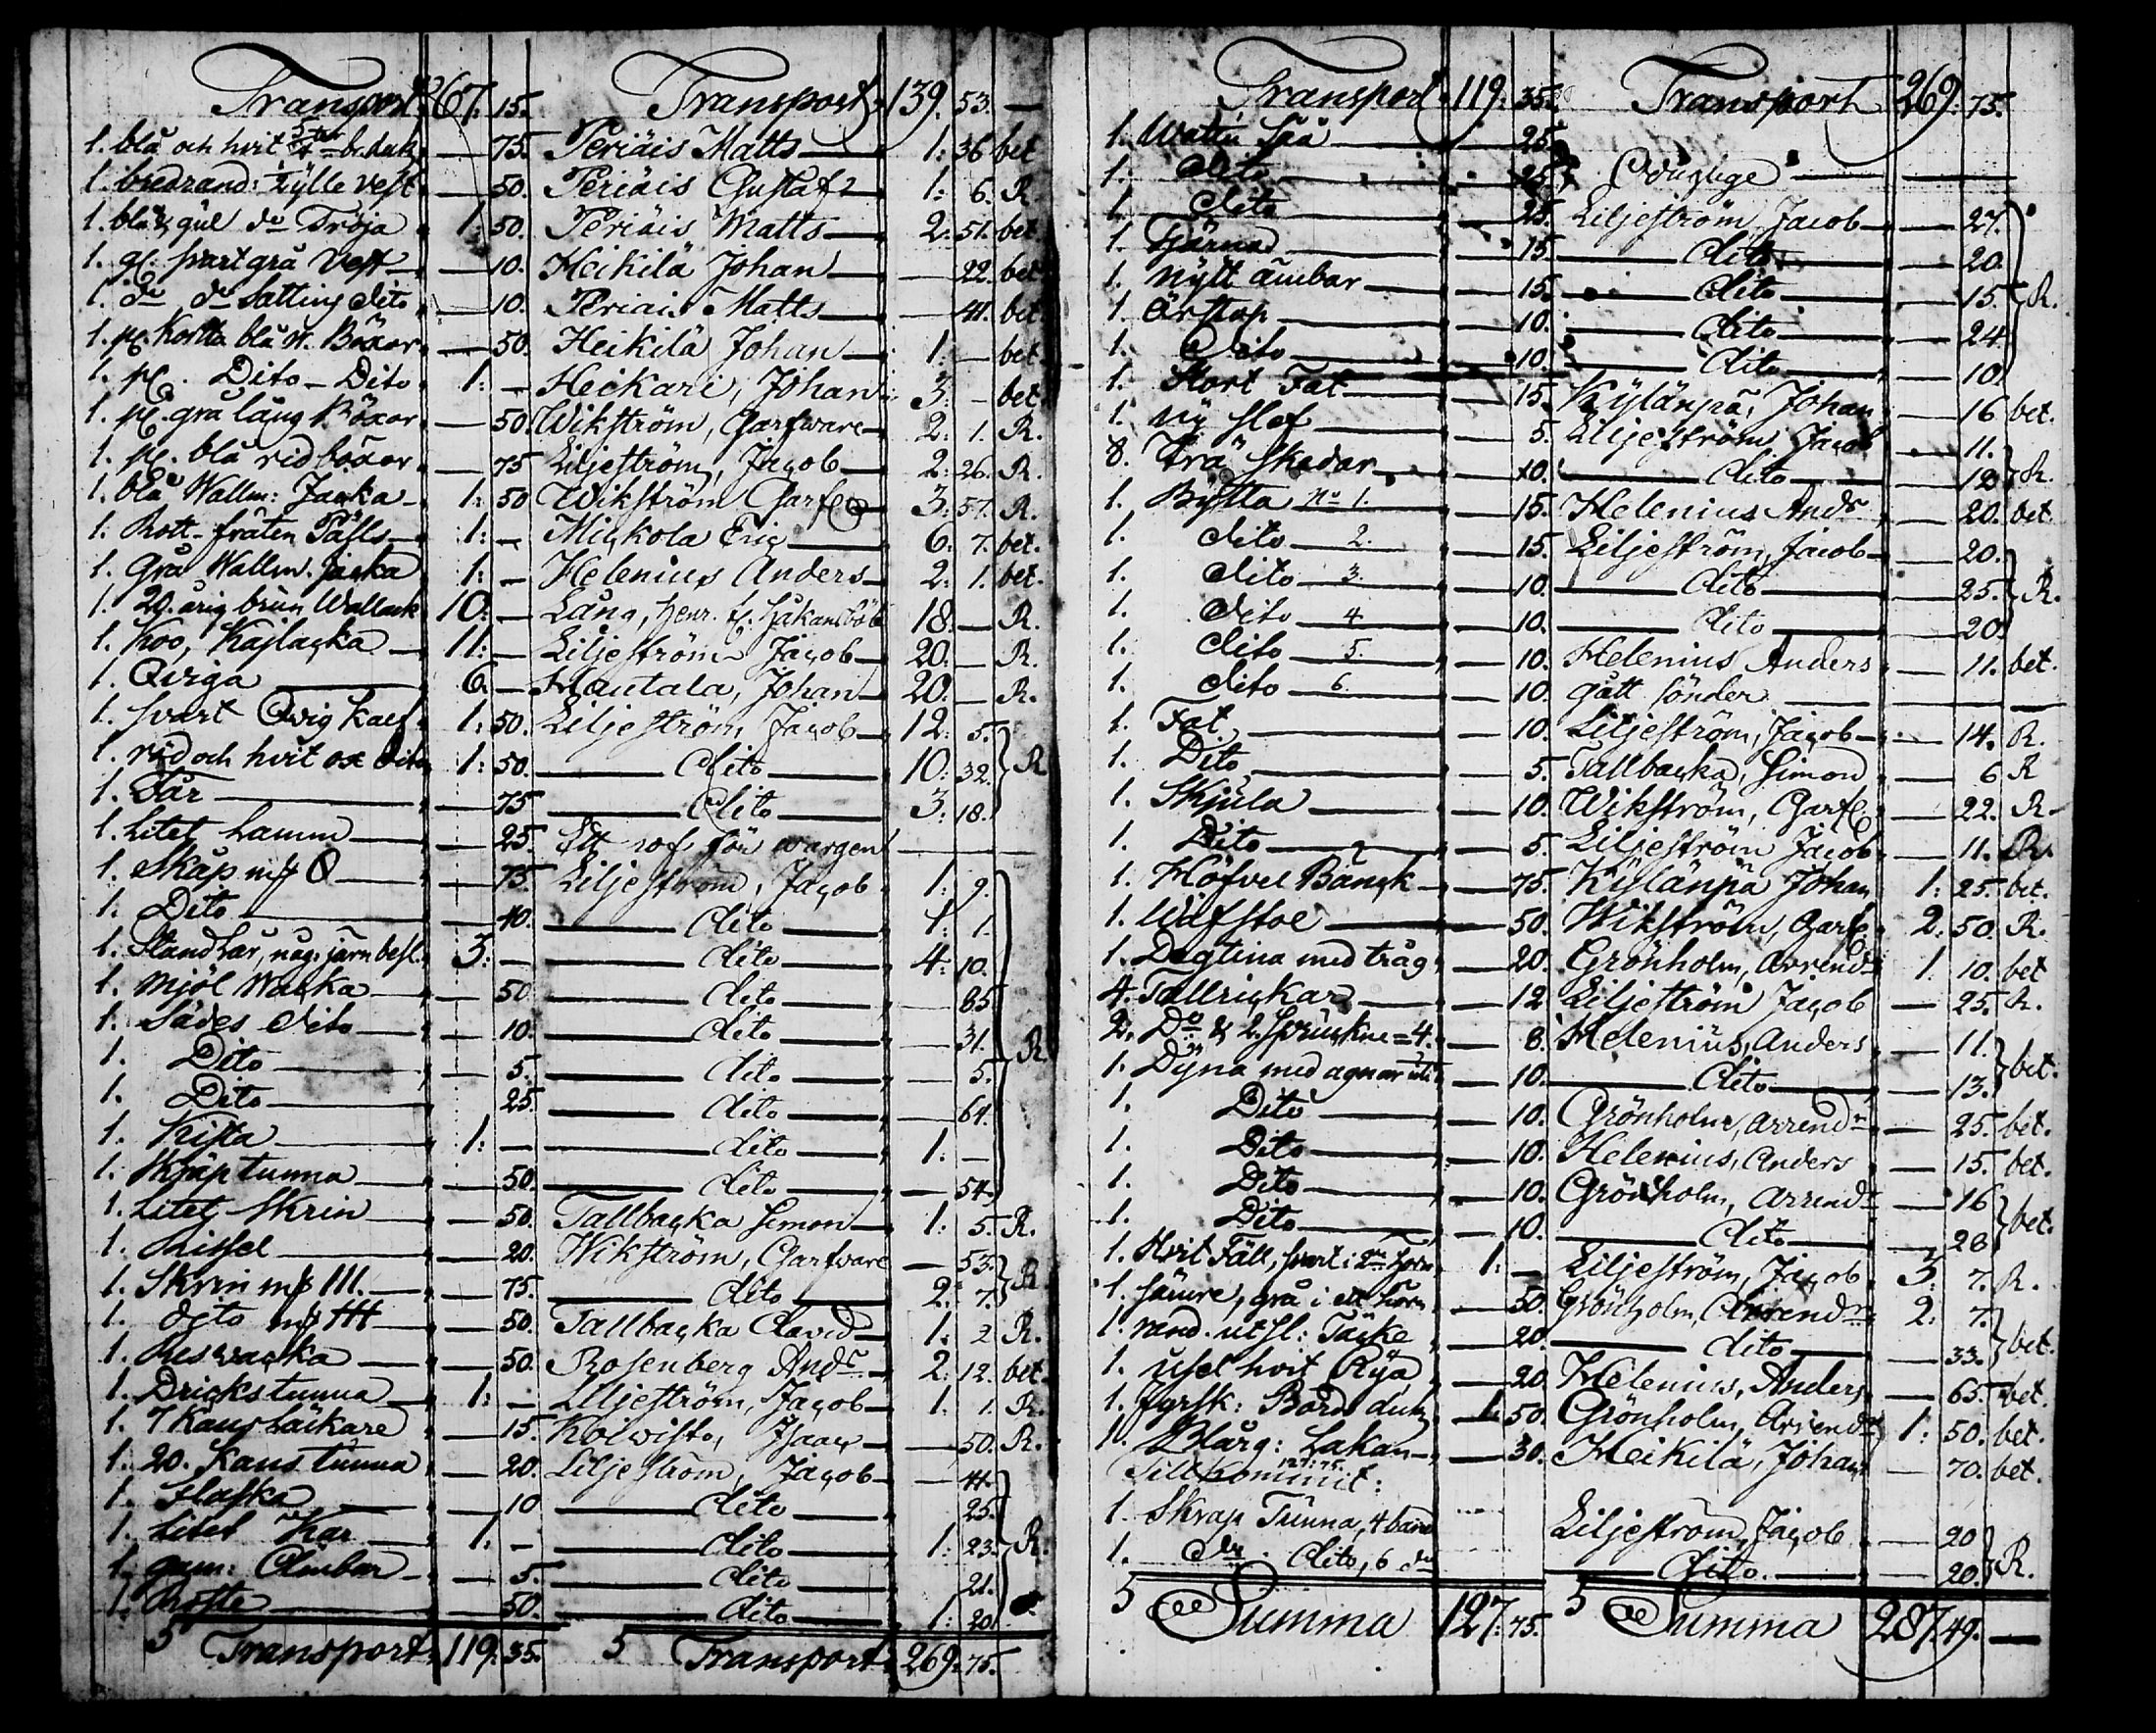 Transport 67. 15. Transport 139. 53. —
1. blå och hvit br. duk — 75. Periäis Matts — 1: 36 bet
1. bredrand: tylle vest — 50. Periäis Gustaf 1: 6. R.
1. blå & gul do Tröja 1: 50. Periäis Matts — 2: 51. bet
1. gl. svart grå Vest — 10. Heikilä Johan — 22. bet
1. do do Satting dito — 10. Periäis Matts — 41. bet
1. pr. Korta blå W. Böxor — 50. Heikilä Johan 1: — bet
1. pr. Dito – Dito 1: — Heikari, Johan 3: — bet
1. pr. grå lång Böxor — 50. Wikström, Garfware 2: 1. R.
1. pr. blå rid böxor — 75 Liljeström, Jacob 2: 26. R.
1. blå Wallm: Jacka 1: 50 Wikström Garf 3: 57. R.
1. Rott-fräten Päls 1: — Mickola Eric 6: 7. bet.
1. Grå Wallm. Jacka 1: — Helenius Anders 2: 1. bet.
1. 20. årig brun Wallack 10: — Lång, Henr. fr. Håkansböle 18: — R.
1. Koo, Kajlacka 11: — Liljeström Jacob 20: — R.
1. Qviga 6: — Hautala, Johan 20. — R.
1. svart Qvig Kalf 1: 50. Liljeström Jacob 12: 5.
1. röd och hvit ox dito 1: 50. dito 10: 32. R
1. Får — 75 dito 3: 18.
1. Litet Lamm — 25. Ett rof för wargen —
1. Skåp — 75. Liljeström, Jacob 1: 9.
1. Dito — 40. dito 1: 1.
1. Stand kar, någ. järn besl. 3: — dito 4: 10.
1. Mjöl Wacka — 50 dito — 85
1. Sädes dito — 10. dito — 31. R
1. Dito — 5. dito — 5.
1. Dito — 25. dito — 64.
1. Kista 1: — dito 1: —
1. Skräp tunna — 50. dito — 54.
1. Litet Skrin — 50. Tallbacka Simon 1: 5. R.
1. — 20. Wikström, Garfvare — 53.
1. Skrin III. — 75. dito 2: 7. R
1. dito — 50. Tallbacka David 1. 2 R.
1. wacka — 50. Rosenberg Andr 2: 12. bet.
1. Drickstunna 1: — Liljeström, Jacob 1. 1. R.
1. 7 Kans — 15. Koiwisto, Isaac — 50. R.
1. 20. Kans tunna — 20. Liljeström, Jacob — 44.
1. Flaska — 10 dito 25.
1. Litet Kar 1: — dito 1: 23. R.
1. gam: Ambar — 5. dito 21.
1. — 50. dito 1: 20.
5 Transport 119: 35. 5 Transport 269: 75.
Transport 119: 35. Transport 269. 75.
1. Wattu Såå — 25.
1. dito — 25. Oduglige —
1. dito — 25. Liljeström, Jacob — 27.
1. Tjärna — 15. dito — 20.
1. Nytt ämbar — 15. dito — 15. R.
1. Örstop — 10. dito — 24
1. dito — 10. dito — 10.
1. Stort Fat — 15. Kylänpä, Johan — 16 bet.
1. Ny slef — 5. Liljeström Jacob — 11.
8. Trä Skedar — 10. dito — 12 R.
1. Bytta No 1. — 15. Helenius Andr — 20. bet.
1. dito 2. — 15. Liljeström, Jacob — 20.
1. dito 3. — 10. dito — 25. R.
1. dito 4. — 10. dito — 20.
1. dito 5. — 10. Helenius Anders — 11. bet.
1. dito 6. — 10. gått sönder —
1. Fat — 10. Liljeström, Jacob — 14. R.
1. Dito — 5. Tallbacka, Simon — 6 R
1. Skjula — 10. Wikström, Garf — 22. R.
1. Dito — 5. Liljeström Jacob — 11. R.
1. Höfvel Bänck — 75. Kylänpä Johan 1: 25. bet.
1. Wäfstol — 50. Wikström, Garf. 2: 50. R.
1. Degtina med tråg — 20. Grönholm, Arrendr 1. 10. bet
4. Tallrickar — 12 Liljeström Jacob — 25. R.
2. Do & 2. = 4. — 8. Helenius, Anders — 11.
1. Dyna med agnar uti — 10. dito — 13. bet.
1. Dito — 10. Grönholm, arrendr — 25. bet.
1. Dito — 10. Helenius, Anders — 15. bet.
1. Dito — 10. Grönholm, arrendr — 16
1. Dito — 10. dito — 28 bet.
1. Hvit Fäll, svart i 2ne hörn 1: — Liljeström, Jacob 3. 7. R.
1. sämre, grå i ett hörn — 50. Grönholm, Arrendr 2: 7.
1. rand. utsl: Täcke — 20. dito — 33. bet.
1. usel hvit Rya — 20 Helenius, Anders — 65. bet.
1. fyrsk: Bord duk — 50. Grönholm Arrendr 1: 50. bet.
1. Blårg: Lakan — 30. Heikilä, Johan — 70. bet.
127:75.
Tillkommit:
1. Skrap Tunna, 4 band Liljeström, Jacob — 20
1. do dito, 6 do dito — 20. R.
5 Summa 127: 75. 5 Summa 287. 49. —